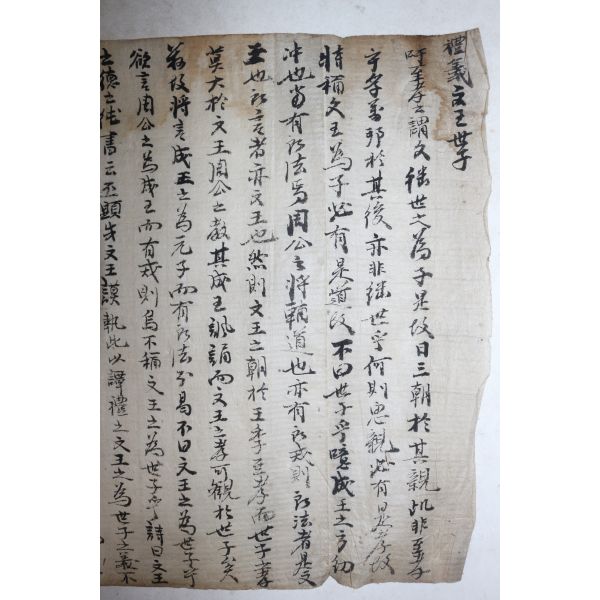 禮義文王世子
吁至孝之謂文 繼世之爲子 是故日三朝於其親 此非至孝
乎 孚萬邦於其後 亦非繼世乎 何則 思親 必有是孝 故
特稱文王爲子 必有是道 故不曰世子乎 噫 成王之方幼
冲也 有所法焉 周公之將輔道也 亦有所戒 則所法者是文
王也 所言者亦文王也 然則文王之朝於王季 至孝 而世子之孝
莫大於文王 周公之敎其成王 諷誦而文王之孝可觀 於世子矣
若故將言成王之爲元子而有所法 則曷不曰文王之爲世子乎
欲言周公之爲成王而有戒 則烏不稱文王之爲世子乎 詩曰文王
之德之純 書云丕顯哉文王謨 執此以譯禮之文王之爲世子之義 不